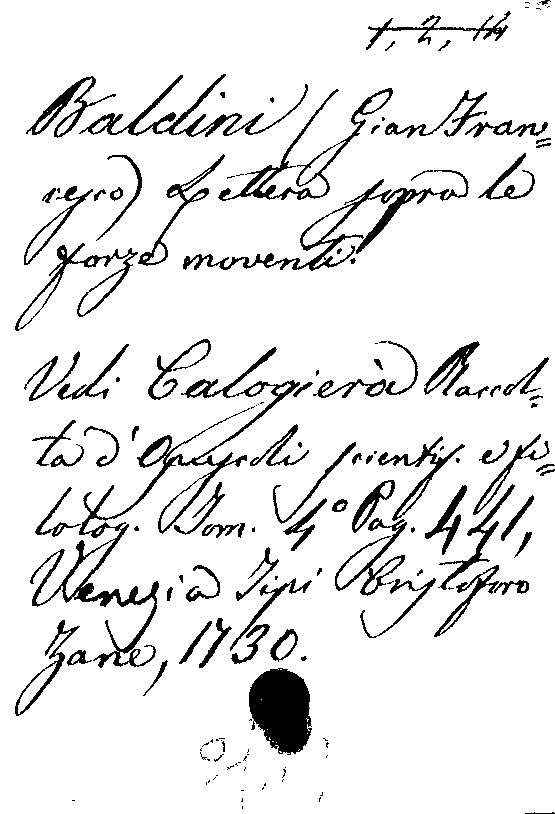 1, 2, 14
Baldini (Gian Fran=
cesco) Lettera sopra le
forze moventi.
Vedi Calogierà Raccol=
ta d'Opuscoli scientif. e fi=
lolog. Tom. 4º Pag. 441,
Venezia Tipi Cristoforo
Zane, 1730.